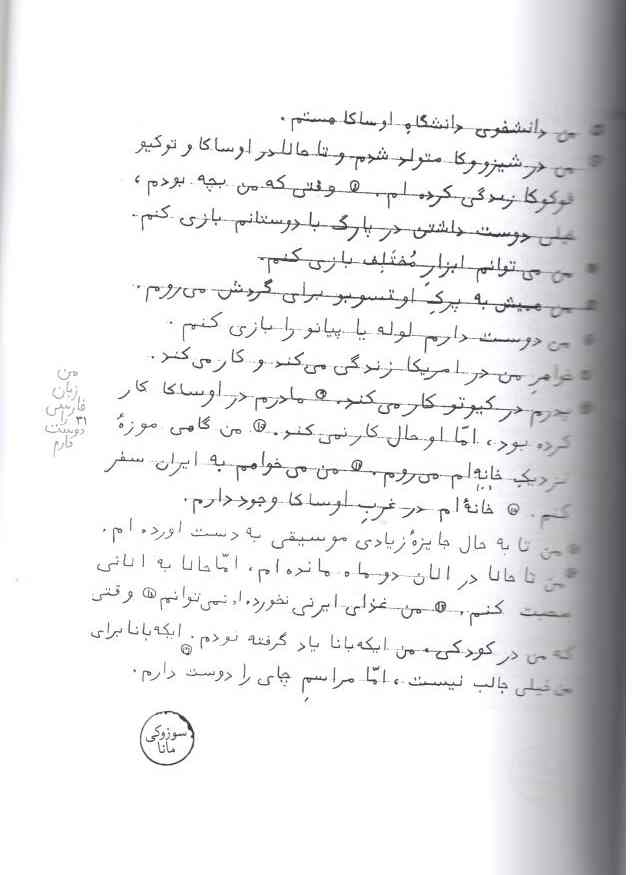 من دانشفوی دانشگاهِ اوساکا هستم.
من در شیزووکا متولد شدم و تا حالا در اوساکا و توکیو
فوکوکا زندگی کرده ام. وقتی که من بچه بودم،
خیلی دوست داشتن در پارگ با دوستانم بازی کنم.
من می توانم ابزارِ مُختَلِف بازی کنم.
من همیش به پرکِ اوتسوبو برای گردش می‌روم.
من دوست دارم لوله یا پیانو را بازی کنم.
خواهرِ من در امریکا زندگی می‌کند و کار می‌کند.
پدرم در کیوتو کار می‌کند. مادرم در اوساکا کار
کرده بود، امّا او حال کار نمی کند. ۱۰ من گاهی موزهٔ
نزدیکِ خانه‌ام می‌روم. ۱۱ من می‌خواهم به ایران سفر
کنم. خانهٔ ام در غربِ اوساکا وجود دارم.
من تا به حال جایزهٔ زیادی موسیقی به دست اورده ام.
من تا حالا در المان دو ماه مانده ام، امّا حالا به المانی
صحبت کنم. من غذای ایرنی نخورده ام نمی توانم وقتی
که من در کودکی، من ایکه‌بانا یاد گرفته بودم. ایکه‌بانا برای
من خیلی جالب نیست، امّا مراسمِ چای را دوست دارم.
سوزوکی
مانا
من
زبان
فارسی
۳۱ را
دوست
دارم